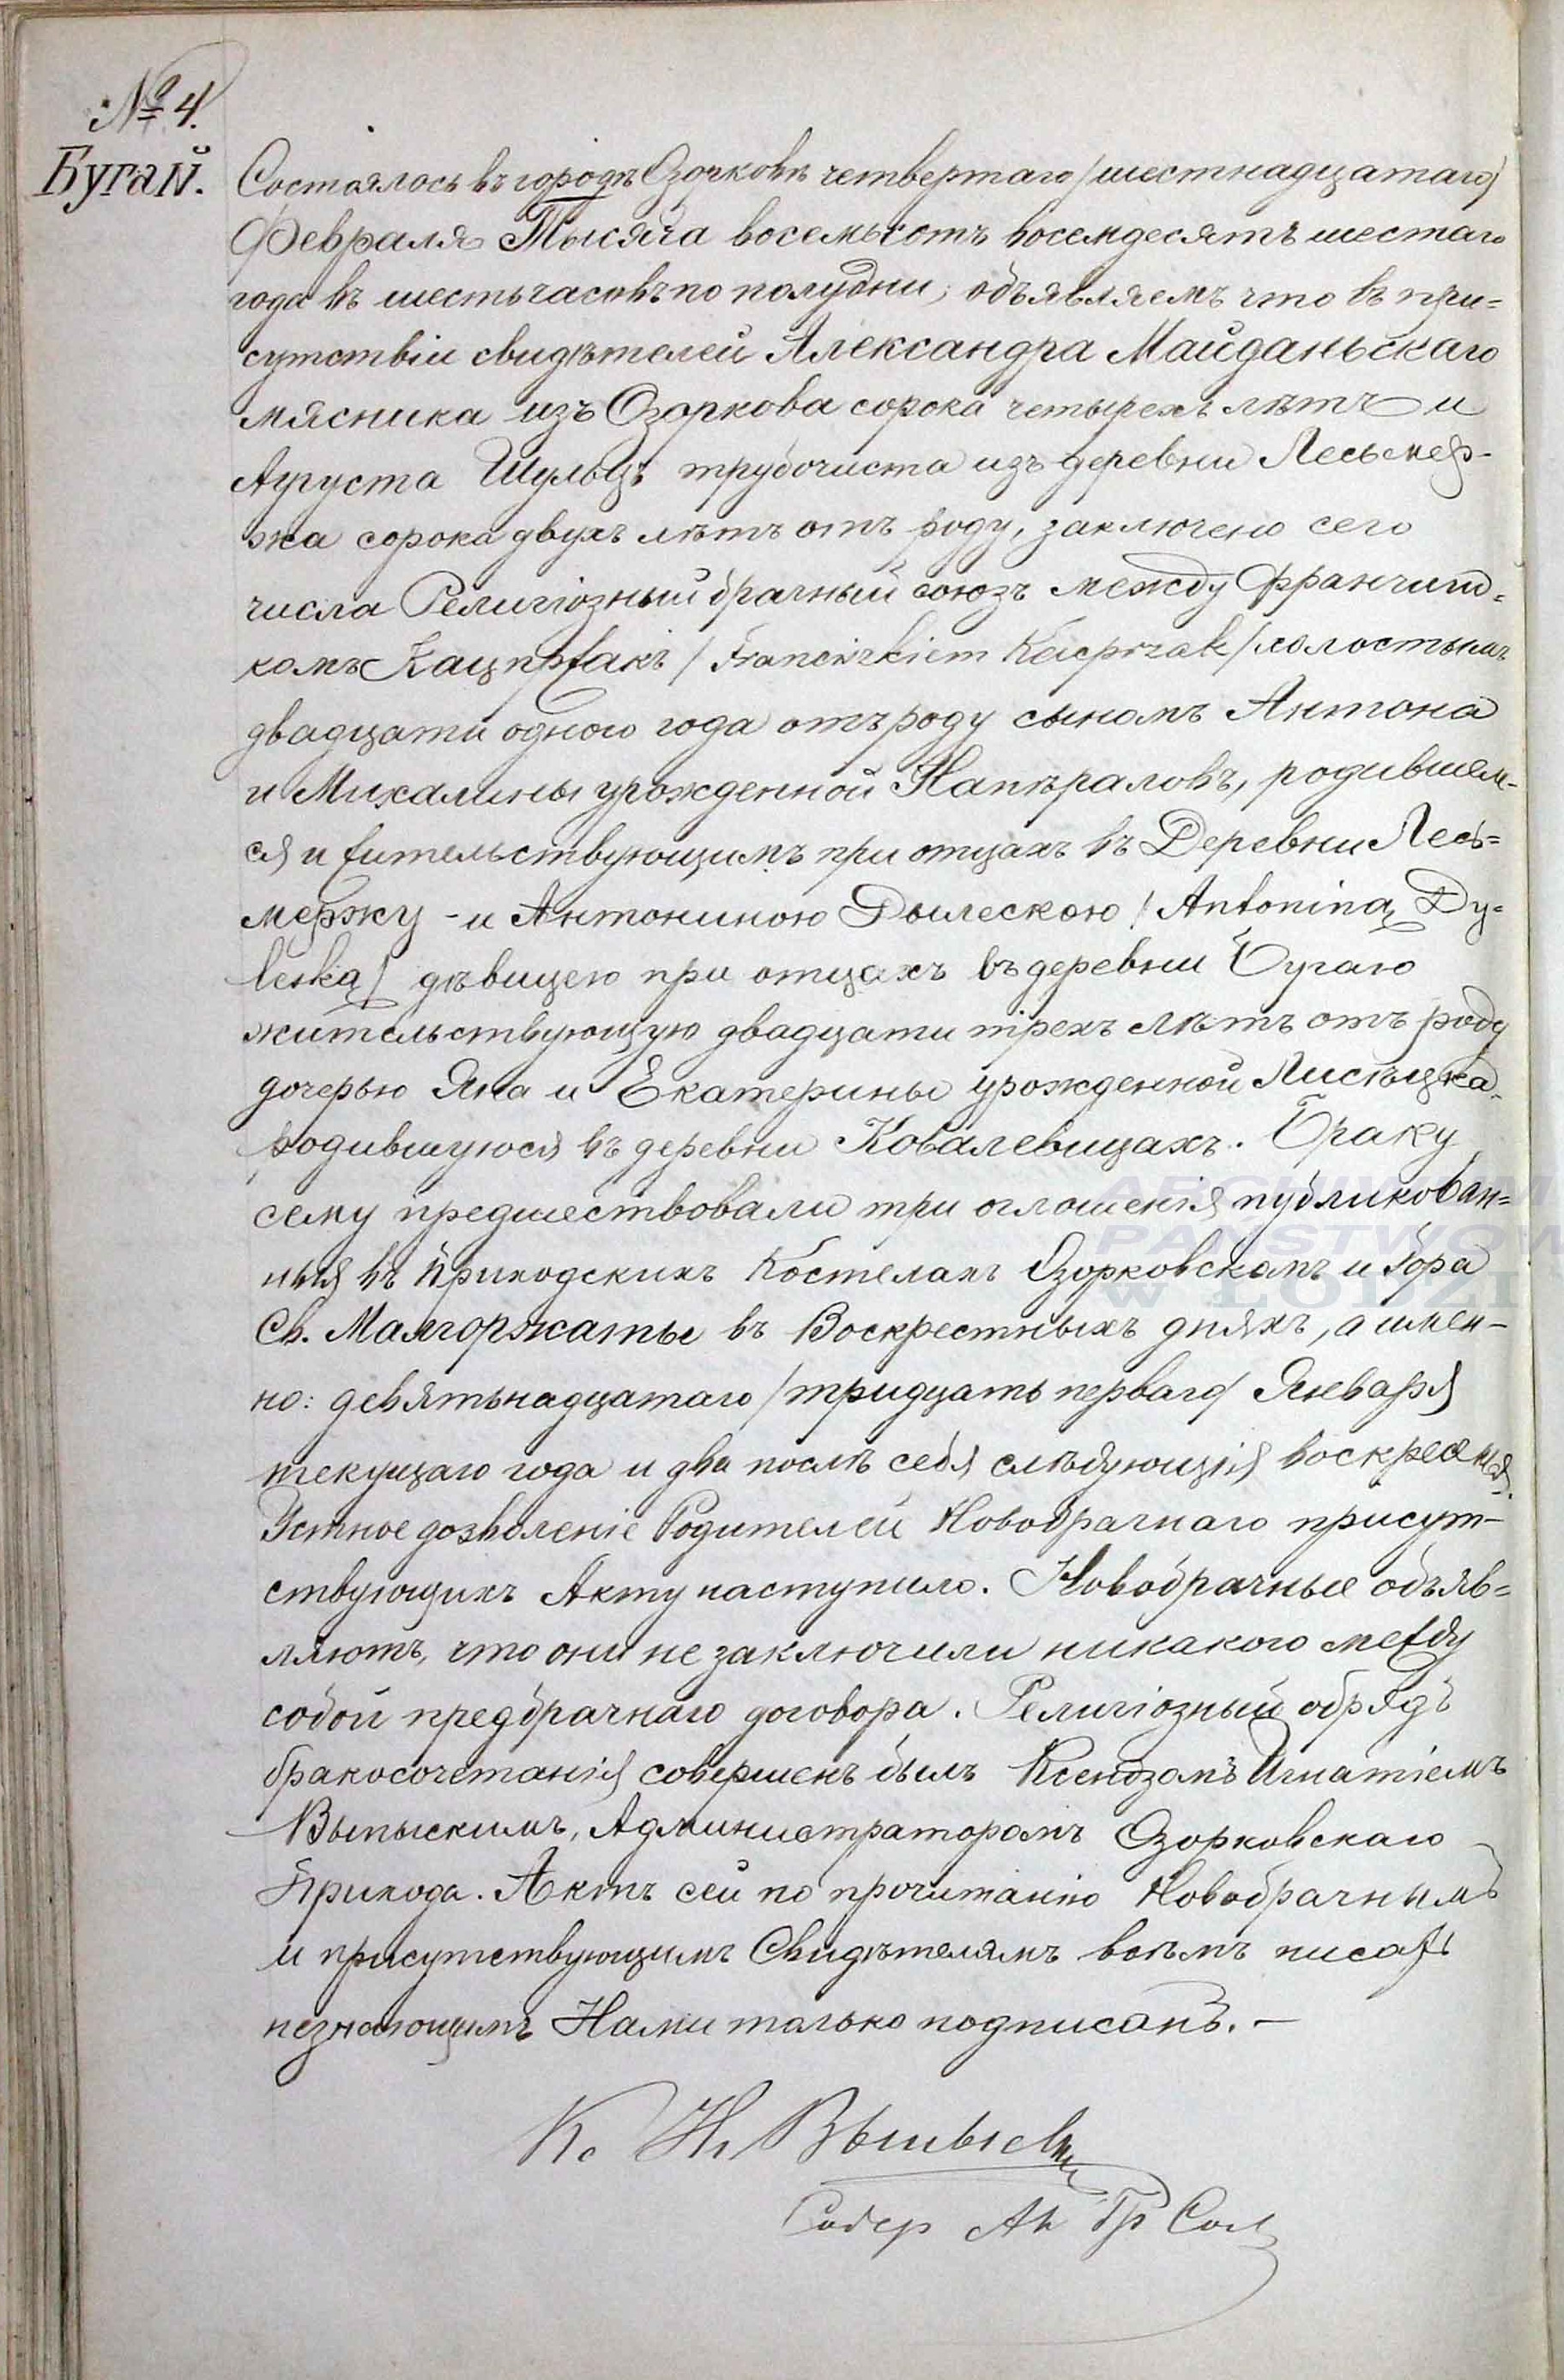 № 4.
Бугай.
Состоялось въ городѣ Озорковѣ четвертаго /шестнадцатаго/
Февраля Тысяча восемьсотъ восемдесятъ шестаго
года въ шесть часовъ по полудни, объявляемъ что въ при=
сутствіи свидѣтелей Александра Майданьскаго
мясника изъ Озоркова сорока четырехъ лѣтъ и
Августа Шульцъ трубочиста изъ деревни Лесьмер-
жа сорока двухъ лѣтъ отъ роду, заключено сего
числа Религіозный брачный союзъ между Франчиш=
комъ Кацпржакъ /Franciszkiem Kacprzak/ холостымъ
двадцати одного года отъ роду сыномъ Антона
и Михалины урожденной Напѣраловъ, родившем-
ся и жительствующимъ при отцахъ въ Деревни Лесь=
мержу - и Антониною Дылескою /Antoniną Dy=
leską/ дѣвицею при отцахъ въ деревни Бугаю
жительствующую двадцати трехъ лѣтъ отъ роду
дочерью Яна и Екатерины урожденной
родившуюся въ деревни Ковалевицахъ. Браку
сему предшествовали три оглашенія публикован=
ныя въ Приходскихъ Костелахъ Озорковскомъ и Гора
Св. Малгоржаты въ Воскрестныхъ дняхъ, а имен-
но: девятьнадцатаго /тридцать перваго/ Января
текущаго года и два послѣ себя слѣдующія воскресныя.
Устное дозволеніе Родителей Новобрачнаго присут-
ствующихъ Акту наступило. Новобрачные объяв=
ляютъ, что они не заключили никакого между
собой предбрачнаго договора. Религіозный обрядъ
бракосочетанія совершенъ былъ Ксендзомъ Игнатіемъ
Выпыскимъ, Администраторомъ Озорковскаго
Прихода. Актъ сей по прочитанію Новобрачнымъ
и присутствующимъ Свидѣтелямъ всѣмъ писать
незнающимъ Нами только подписанъ. —
Кс И. Выпыскій
Содер Ак Гр Сос
ARCHIWUM
PAŃSTWOW
W ŁODZI